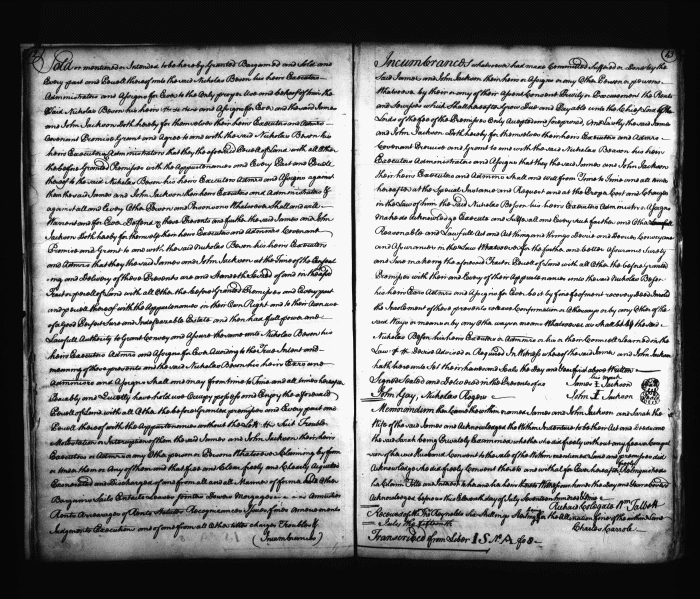 Sold or mentioned or Intended to be hereby Granted Bargained and Sold and
Every part and Parcell thereof unto the said Nicholas Beson his heirs Executors
Administrators and Assigns for Ever to the Only proper Use and behoof of him the
Said Nicholas Beson his heirs and Assigns for Ever and the said James
and John Jackson Doth hereby for themselves their heirs Executors and Admrs
Covenant Promise Grant and Agree to and with the said Nicholas Beson his
heirs Executors Administrators that they the aforesd Parcell of Land with all other
the before Granted Premises with the Appurtenances and Every Part and Parcell
thereof to the said Nicholas Beson his heirs Executors Admrs and Assigns against
them the said James and John Jackson their heirs Executors and Administrators &
against all and Every Other Person and Persons Whatsoever Shall and will
Warrant and for Ever Defend by these Presents and further the said James and John
Jackson Doth hereby for themselves their heirs Executors and Admrs Covenant
Promise and Grant to and with the said Nicholas Beson his heirs Executors
and Admrs that they the said James and John Jackson at the Time of the Ensealing
and Delivery of these Presents are and Stand Seized of and in the
Tract or parcell of Land with all Other the before Granted Premises and Every part
and parcell thereof with the Appurtenances in their Own Right and to their Own use
of a Good Perfect Sure and Indefeasable Estate and then had full power and
Lawfull Authority to Grant Convey and Assure the same unto Nicholas Beson his
heirs Executors Admrs and Assigns for Ever According to the True Intent and
meaning of these presents and the said Nicholas Beson his heirs Exrs and
Adminrs and Assigns Shall and may from time to Time and all times hereafter
Peacably and Quietly have hold use Occupy possess and Enjoy the aforesaid
Parcell of Land with all Other the before Granted premises and Every part and
Parcell thereof with the Appurtenances without the Lett Suit Trouble
Molestation or Interruption of them the said James and John Jackson their heirs
Executors or Admrs or any Other person or Persons Whatsoever Claiming by from
or under them or Any of them and that free and Clear freely and Clearly Acquitted
Exonerated and Discharged of and from all and all Manner of former and Other
Bargains Sales Estates Leases Joyntures Dowers Mortgages Annuities
Rents Arrearages of Rents Statutes Recognizances Issues fines Amerciaments
Judgments Executions and of and from all Other titles charges Troubles &
(Incumbrances)
Incumbrances whatsoever had made Committed Suffered or Done by the
Said James and John Jackson their heirs or Assigns or any Other Person or Persons
Whatsoever by their or any of their Assent Consent Privity or Procurement the Rents
and Services which Shall hereafter Grow Due and Payable unto the Chief Lord
Lords of the fee of the Premises Only Accepted and foreprized And Lastly the said James
and John Jackson Doth hereby for themselves their heirs Executors and Admrs
Covenant Promise and Grant to and with the said Nicholas Beson his heirs
Executors Administrators and Assigns that they the said James and John Jackson
their heirs Executors and Adminrs Shall and will from Time to Time and all times
hereafter at the Special Instance and Request and at the Proper Cost and Charges
in the Law of him the said Nicholas Beson his heirs Executors Administrs or Assigns
make do Acknowledge Execute and Suffer all and Every such further and Other
Reasonable and Lawfull Act and Acts thing and things Device and Devices Conveyances
and Assurances in the Law Whatsoever for the further and better Assurance Surety
and Sure making the aforesaid Tract or Parcell of Land with all Other the before Granted
Premises with their and Every of their Appurtenances unto the said Nicholas Beson
his heirs Exrs Admrs and Assigns for Ever be it by fine feofment recovery Deed Inrolled
the Inrolement of these presents release Confirmation or Otherways or by any Other of the
said Ways or means or by Any Other ways or means Whatsoever as Shall be by the said
Nicholas Beson his heirs Executors or Adminrs or his or their Councill Learned in the
Law Devised Advised or Required In Witness whereof the said James and John Jackson
hath hereunto Set their hands and Seals the Day and Year first above Written
Signed Sealed and Delivered in the Presents of us
James I Jackson
John Gay, Nicholas Rogers
John I Jackson
his mark
Memorandum that Came the within named James and John Jackson and Sarah the
Wife of the said James and Acknowledged the Within Indenture to be their Act and Deed and
the said Sarah being Privately Examined whether She did freely without any fear or Compulsion
of the said Husband Consent to the sale of the Within mentioned Land and premises did
Acknowledge She did freely Consent thereto
Acknowledged before us the Eleventh day of July Seventeen hundred
Richard Colegate Wm Talbott
Received of Mr Reynolds Six Shillings Sterling for the Alienation fine of the within Land
July the fifteenth
Charles Carroll
Transcribed from Liber I S No A fo 8